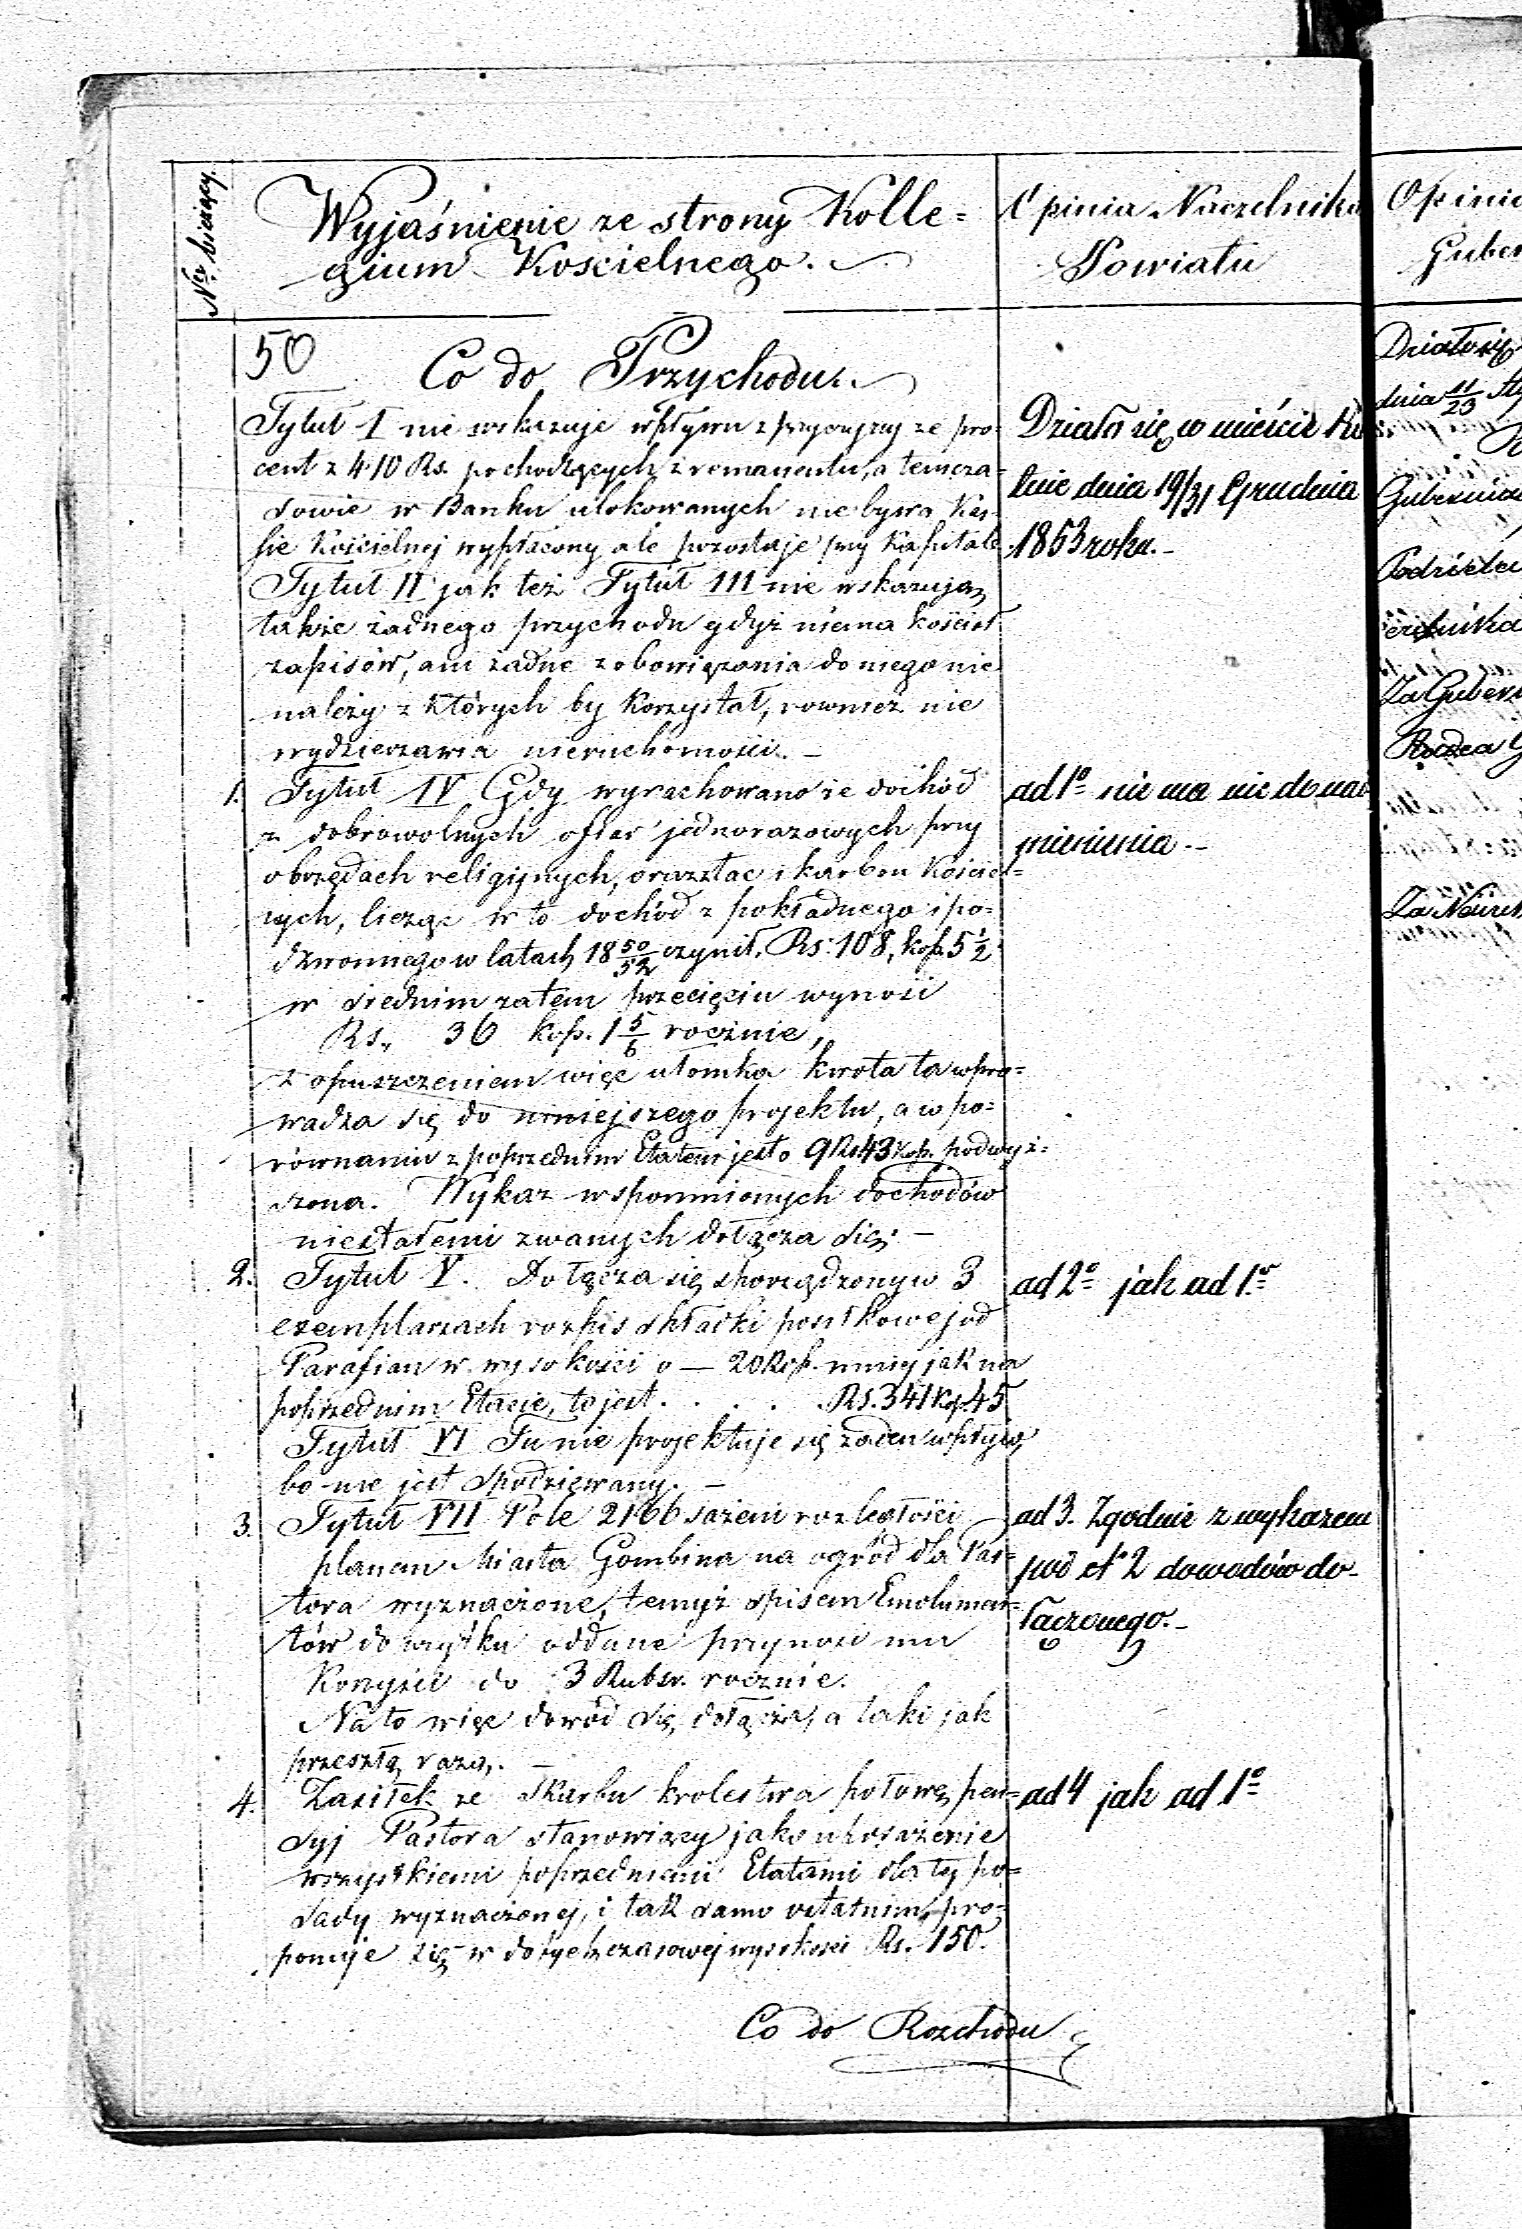 Nr bieżący.
Wyjaśnienie ze strony Kolle=
gium Koscielnego.
Opinia Naczelnika
Powiatu
Opinia
Guber
50
Co do Przychodu.
Tytuł I nie wskazuje wpływu z przyczyny że pro-
cent z 410 Rs. pochodzących z remanentu, a temcza-
sowie w Banku ulokowanych nie bywa Kas-
sie Kościelnej wypłacony ale pozostaje przy Kapitale
Tytuł II jak też Tytuł III nie wskazują
także żadnego przychodu gdyż niema kościoł
zapisów, ani żadne zobowiązania do niego nie
należy z których by korzystał, rownież nie
wydzierzawia nieruchomości. –
1. Tytuł IV Gdy wyrachowano że dochód
z dobrowolnych ofiar jednorazowych przy
obrzędach religijnych, oraz tac i karbon Kościel=
nych, licząc w to dochód z pokładnego i po-
dzwonnego w latach 18 50/52 czynił Rs. 108, kop. 5 1/2
w średnim zatem przecięciu wynosi
Rs. 36 kop. 1 5/6 rocznie,
z opuszczeniem więc ułomka kwota ta wpro=
wadza się do niniejszego projektu, a w po=
równaniu z poprzednim Etatem jest o 9 Rs 43 kop. podwyż=
szona. Wykaz wspomnionych dochodów
niestałemi zwanych dołącza się. –
2. Tytuł V. Dołącza się sporządzony w 3
exemplarzach rozpis składki posiłkowej od
Parafian w wysokości o — 20 kop. mniej jak na
poprzednim Etacie, to jest . . . . . Rs. 341 kop. 45
Tytuł VI Tu nie projektuje się żaden wpływ
bo nie jest spodziewany. –
3. Tytuł VII Pole 2166 sażeni rozległości
planem Miasta Gombina na ogród dla Pas=
tora wyznaczone, temyż spisem Emolumen=
tów do użytku oddane przynosi mu
Korzyści do 3 Rubsr. rocznie.
Na to więc dowód się dołącza, a taki jak
przeszłą razą. –
4. Zasiłek ze Skarbu krolestwa połowę pen=
syj Pastora stanowiący jako uposażenie
wszystkiemi poprzedniemi Etatami dla tej po=
sady wyznaczonej, i tak samo ostatnim, pro=
ponuje się w dotychczasowej wysokości Rs. 150.
Co do Rozchodu
Działo się w mieście Ku
tnie dnia 19/31 Grudnia
1853 roku. –
ad 1º nie ma nic do nad
mienienia. –
ad 2º jak ad 1º
ad 3. Zgodnie z wykazem
pod Nº 2 dowodów do-
łączonego. –
ad 4 jak ad 1º
Działo się
dnia 11/23 Sty
Za Guber
Radca G